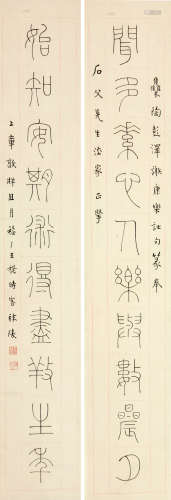 集陶彭澤謝康樂詩句篆奉
聞多素心人樂與數晨夕
石父先生法家正
始知安期術得盡養生年
上章敦牂且月福厂王禔時客秣陵